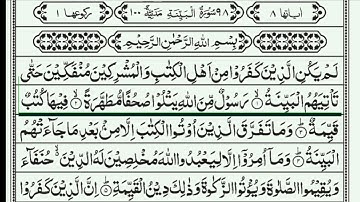 اٰیاتها ۸ ۹۸ سُوْرَةُ الْبَیِّنَةِ مَدَنِیَّةٌ ۱۰۰ رکوعها ۱
بِسْمِ اللهِ الرَّحْمٰنِ الرَّحِیْمِ
لَمْ یَكُنِ الَّذِیْنَ كَفَرُوْا مِنْ اَهْلِ الْكِتٰبِ وَالْمُشْرِكِیْنَ مُنْفَكِّیْنَ حَتّٰی
تَاْتِیَهُمُ الْبَیِّنَةُ ۙ۱ رَسُوْلٌ مِّنَ اللهِ یَتْلُوْا صُحُفًا مُّطَهَّرَةً ۙ۲ فِیْهَا كُتُبٌ
قَیِّمَةٌ ؕ۳ وَمَا تَفَرَّقَ الَّذِیْنَ اُوْتُوا الْكِتٰبَ اِلَّا مِنْۢ بَعْدِ مَا جَآءَتْهُمُ
الْبَیِّنَةُ ؕ۴ وَمَاۤ اُمِرُوْۤا اِلَّا لِیَعْبُدُوا اللهَ مُخْلِصِیْنَ لَهُ الدِّیْنَ ۙ۬ حُنَفَآءَ
وَیُقِیْمُوا الصَّلٰوةَ وَیُؤْتُوا الزَّكٰوةَ وَذٰلِكَ دِیْنُ الْقَیِّمَةِ ؕ۵ اِنَّ الَّذِیْنَ كَفَرُوْا